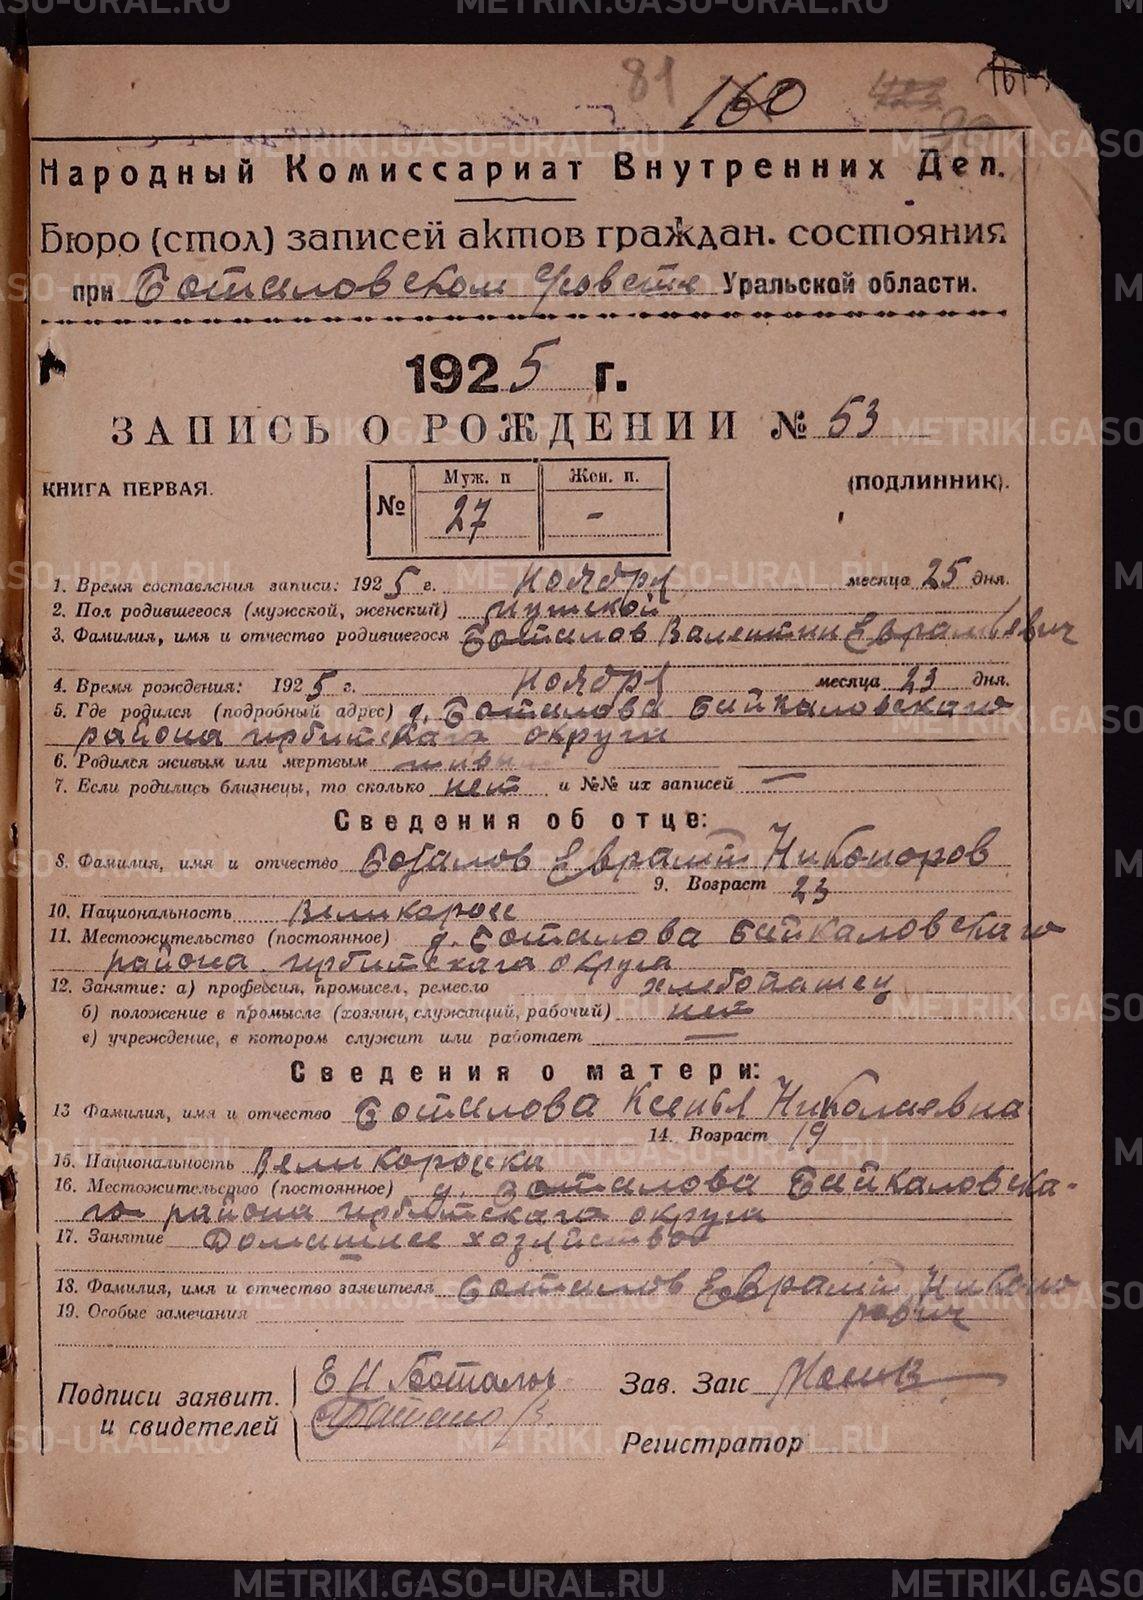 81 160
Народный Комиссариат Внутренних Дел.
Бюро (стол) записей актов граждан. состояния
при Боталовском с/совете Уральской области.
1925 г.
ЗАПИСЬ О РОЖДЕНИИ № 53
КНИГА ПЕРВАЯ. (ПОДЛИННИК).
№ Муж. п Жен. п.
27 -
1. Время составления записи: 1925 г. Ноября месяца 25 дня.
2. Пол родившегося (мужской, женский) Мужской
3. Фамилия, имя и отчество родившегося Боталов Валентин Еврамьевич
4. Время рождения: 1925 г. Ноября месяца 23 дня.
5. Где родился (подробный адрес) д. Боталова Байкаловскаго
района Ирбитскаго округа
6. Родился живым или мертвым живым
7. Если родились близнецы, то сколько нет и №№ их записей —
Сведения об отце:
8. Фамилия, имя и отчество Боталов Еврамп Никоноров
9. Возраст 23
10. Национальность Великоросс
11. Местожительство (постоянное) д. Боталова Байкаловскаго
района Ирбитскаго округа
12. Занятие: а) профессия, промысел, ремесло хлебопашец
б) положение в промысле (хозяин, служащий, рабочий) нет
в) учреждение, в котором служит или работает —
Сведения о матери:
13 Фамилия, имя и отчество Боталова Ксенья Николаевна
14. Возраст 19
15. Национальность Великороска
16. Местожительство (постоянное) д. Боталова Байкаловска-
го района Ирбитскаго округа
17. Занятие Домашнее хозяйство
18. Фамилия, имя и отчество заявителя Боталов Еврамп Никоно
19. Особые замечания рович
Подписи заявит. и свидетелей
Е Н Боталов
Зав. Загс
Регистратор
METRIKI.GASO-URAL.RU